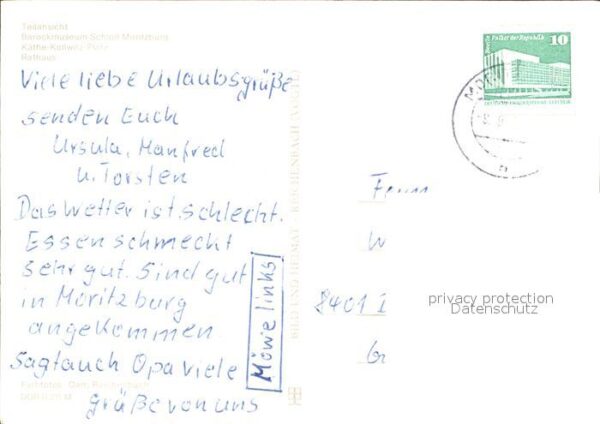 Teilansicht
Barockmuseum Schloß Moritzburg
Käthe-Kollwitz-Platz
Rathaus
Viele liebe Urlaubsgrüße
senden Euch
Ursula, Manfred
u. Torsten
Das Wetter ist schlecht.
Essen schmeckt
sehr gut. Sind gut
in Moritzburg
angekommen.
Sagt auch Opa viele
grüße von uns
Möwe links
BILD UND HEIMAT REICHENBACH
10
Palast der Republik
Fam
W
8401
Gr
privacy protection
Datenschutz